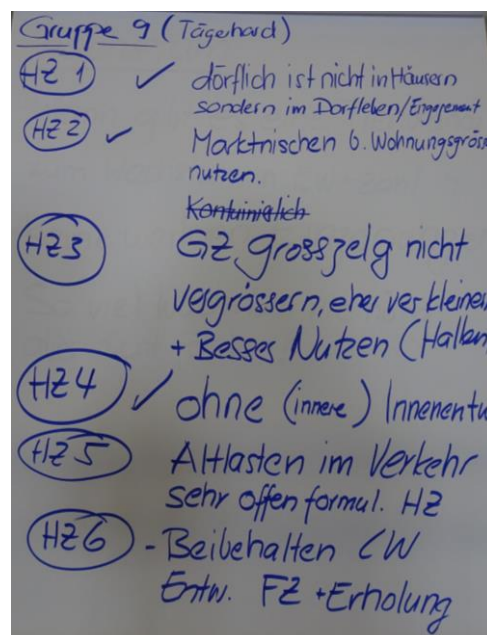 Gruppe 9 (Tägerhard)
HZ 1 ✓ dörflich ist nicht in Häusern
sondern im Dorfleben/Engagement
HZ 2 ✓ Marktnischen b. Wohnungsgröss
nutzen.
HZ3 GZ Grosszelg nicht
vergrössern, eher verkleiner
+ Besses Nutzen (Hallen
HZ4 ✓ ohne (innere) Innenentw
HZ5 Altlasten im Verkehr
sehr offen formul. HZ
HZ6 - Beibehalten LW
Entw. FZ + Erholung